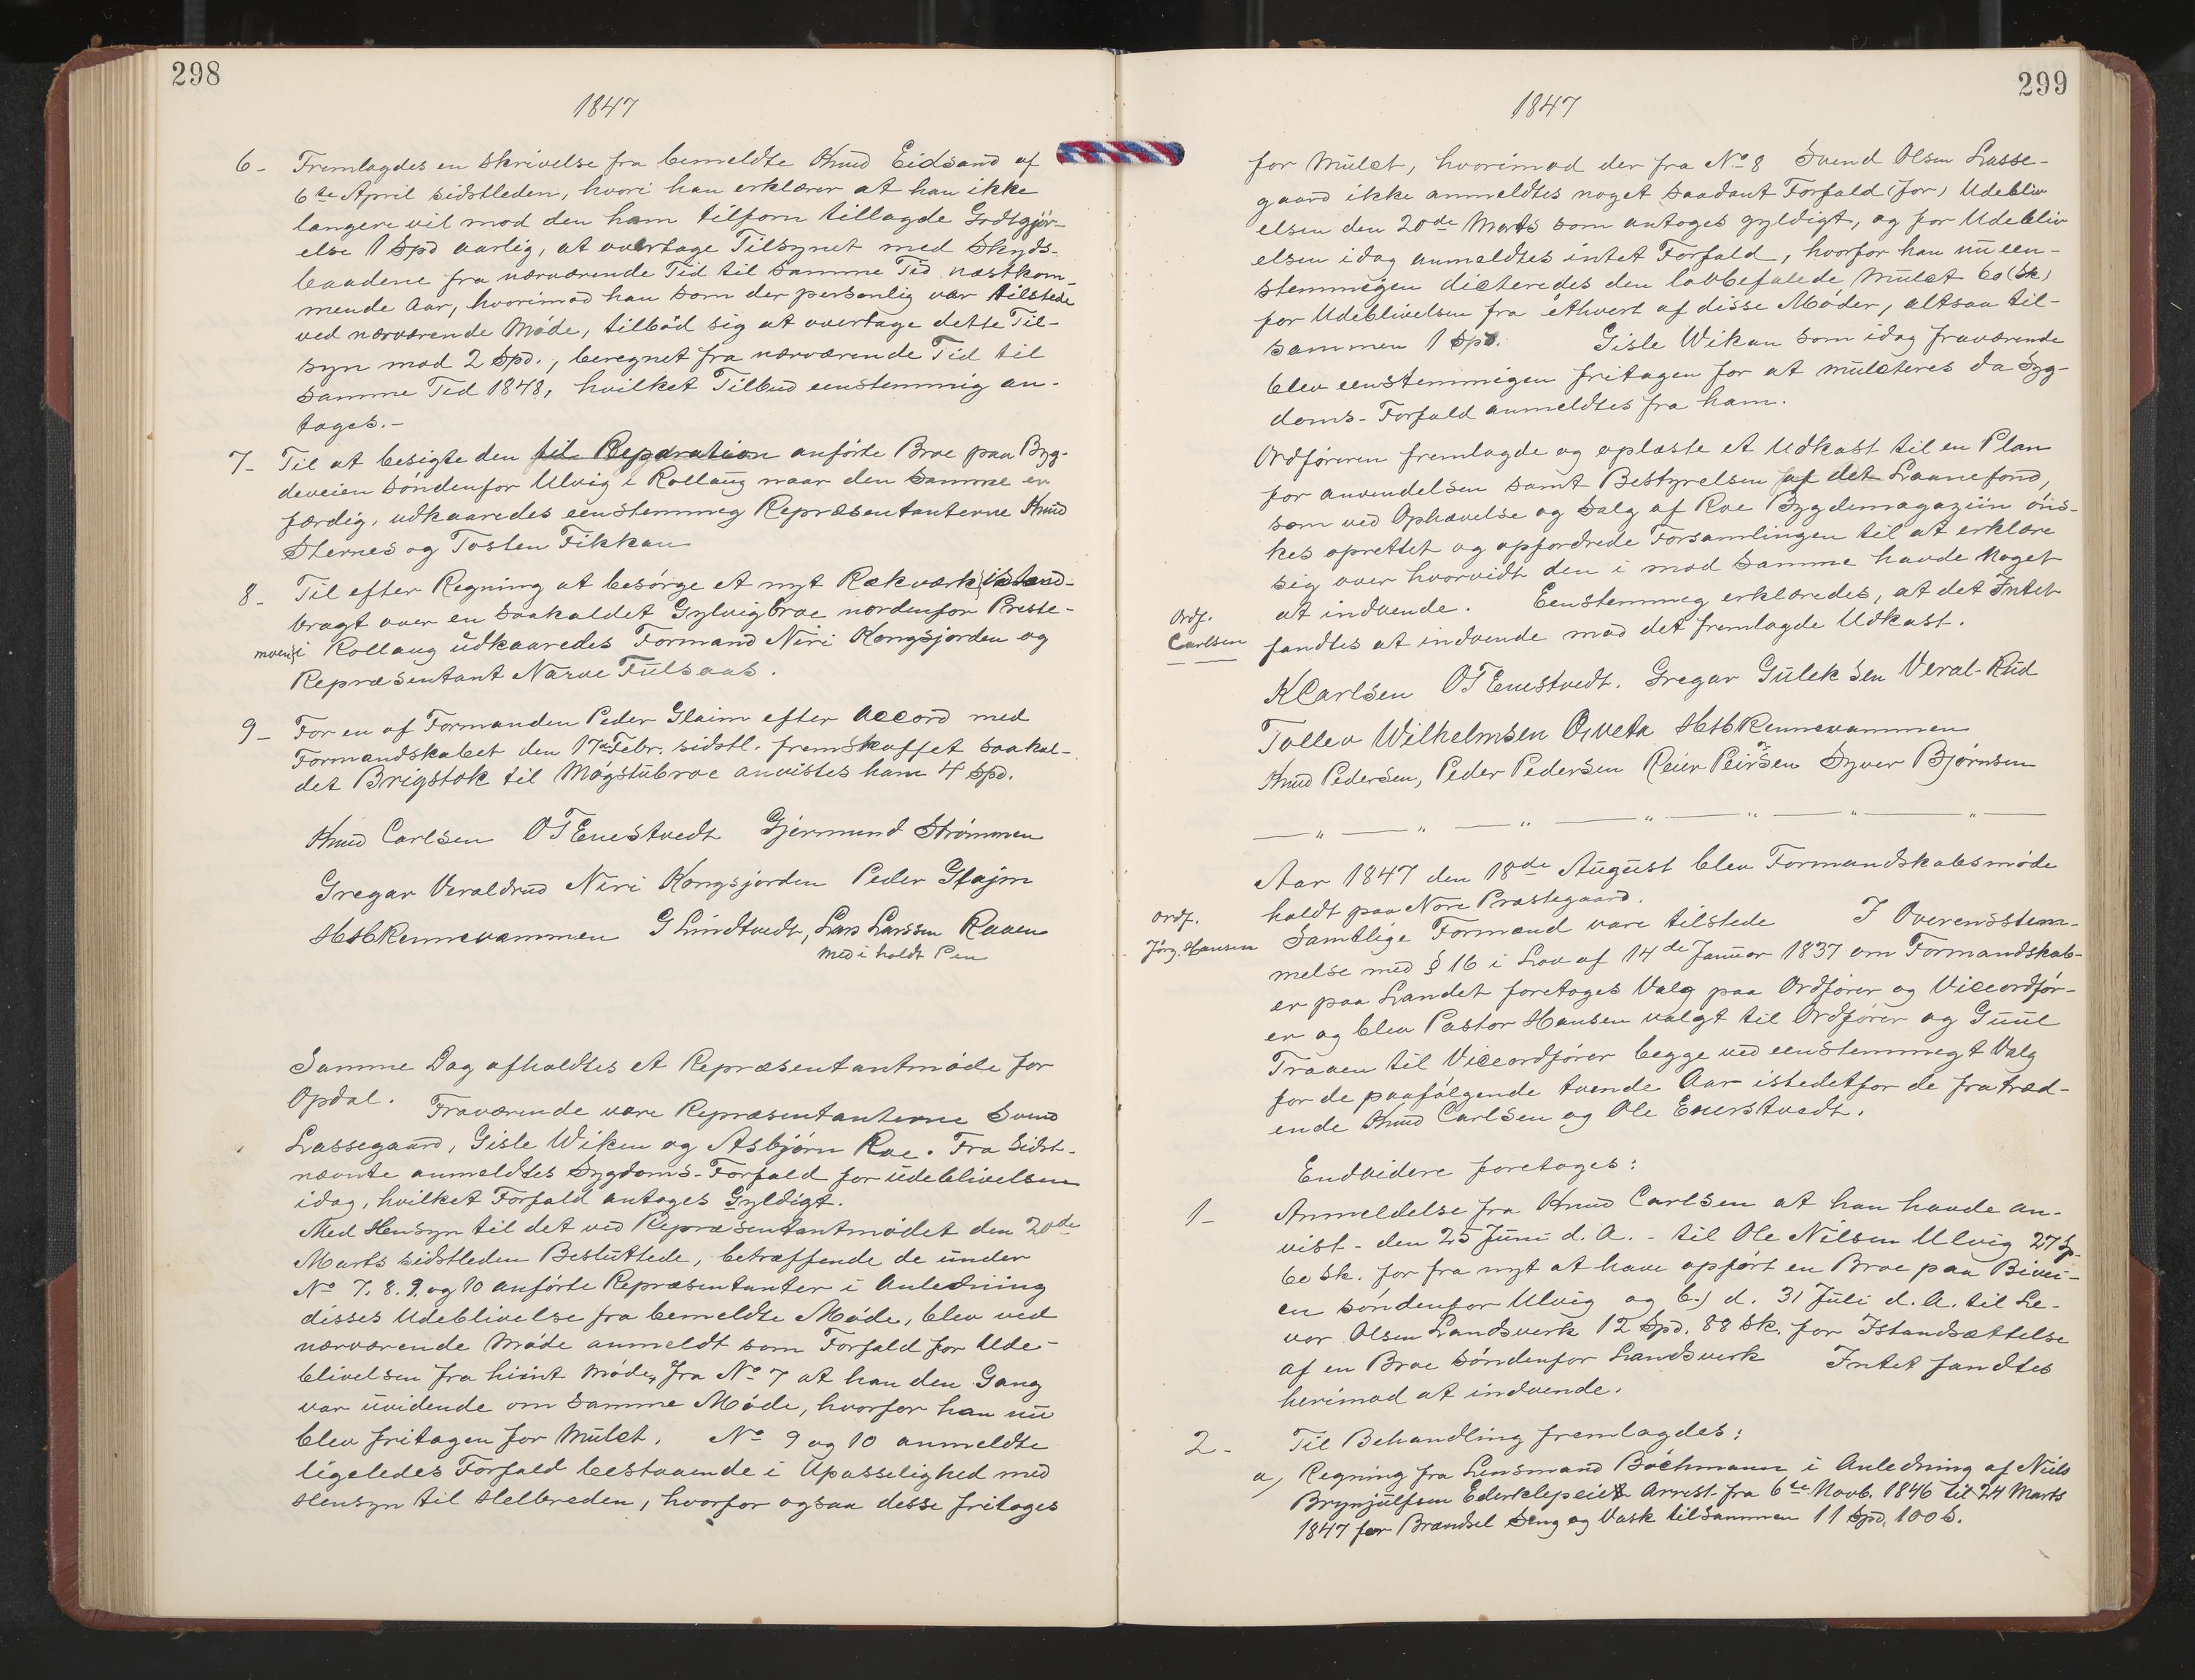 298
1847
6- Fremlagdes en Skrivelse fra bemeldte Knud Eidsand af
6te April sidstleden, hvori han erklærer at han ikke
længere vil mod den ham tilforn tillagde Godtgjör-
else 1 Spd aarlig, at overtage Tilsynet med Skyds-
baadene fra nærværende Tid til samme Tid næstkom-
mende Aar, hvorimod han som der personlig var tilstede
ved nærværende Möde, tilböd sig at overtage dette Til-
syn mod 2 Spd., beregnet fra nærværende Tid til
samme Tid 1848, hvilket Tilbud eenstemmig an-
toges.-
7- Til at besigte den til Reparation anförte Broe paa Byg-
deveien söndenfor Ulvig i Rollaug naar den samme er
færdig, udkaaredes eenstemmig Repræsentanterne Knud
Sternes og Tosten Fikkan
8- Til efter Regning at besörge et nyt Rækværk istand-
bragt over en saakaldet Gylvigbroe nordenfor Preste-
moen i Rollaug udkaaredes Formand Niri Kongsjorden og
Repræsentant Narve Fulsaas.
9- For en af Formanden Peder Glaim efter Accord med
Formandskabet den 17de Febr. sidstl. fremskaffet saakal-
det Brigstok til Mogstubroe anvistes ham 4 Spd.
Knud Carlsen OTEnestvedt Gjermund Strömmen
Gregar Veraldrud Niri Kongsjorden Peder Glajm
HsbRennevammen G Lindtvedt, Lars Larssen Raaen
med i holdt Pen
Samme Dag afholdtes et Repræsentantmöde for
Opdal. Fraværende vare Repræsentanterne Svend
Lassegaard, Gisle Wiken og Asbjörn Roe. Fra sidst-
nævnte anmeldtes Sygdoms-Forfald for udeblivelsen
idag, hvilket Forfald antoges Gyldigt.
Med Hensyn til det ved Repræsentantmödet den 20de
Marts sidstleden Besluttede, betræffende de under
No 7. 8. 9. og 10 anförte Repræsentanter i Anledning
disses Udeblivelse fra bemeldte Möde, blev ved
nærværende Möde anmeldt som Forfald for Ude-
blivelsen fra hiint Möde, fra No 7 at han den Gang
var uvidende om samme Möde, hvorfor han nu
blev fritagen for Mulct. No 9 og 10 anmeldte
ligeledes Forfald bestaaende i Upasselighed med
Hensyn til Helbreden, hvorfor ogsaa desse fritoges
299
1847
for Mulct, hvorimod der fra No 8 Svend Olsen Lasse-
gaard ikke anmeldtes noget saadant Forfald (for) Udebliv
elsen den 20de Marts som antoges gyldigt, og for Udebliv
elsen idag anmeldtes intet Forfald, hvorfor han nu een-
stemmigen dicteredes den lovbefalede Mulct 60 (sk)
for Udeblivelsen fra ethvert af disse Möder, altsaa til-
sammen 1 Spd. Gisle Wikan som idag fraværende
blev eenstemmigen fritagen for at mulcteres da Syg-
doms-Forfald anmeldtes fra ham.
Ordföreren fremlagde og oplæste et Udkast til en Plan
for anvendelsen samt Bestyrelsen af det Laanefond,
som ved Ophævelse og Salg af Roe Bygdemagaziin öns-
kes oprettet og opfordrede Forsamlingen til at erklære
sig over hvorvidt den i mod samme havde Noget
at indvende. Eenstemmig erklæredes, at det Intet
Ordf.
Carlsen
fandtes at indvende mod det fremlagde Udkast.
KCarlsen OTEnestvedt. Gregar Gulek sen Veral-Rud
Tollev Wilhelmsen HsbRennevammen
Knud Pedersen, Peder Pedersen Reier Peirsen Syver Björnsen
Aar 1847 den 18de August blev Formandskabsmöde
holdt paa Nore Præstegaard.
Ordf.
Jörg. Hansen
Samtlige Formænd vare tilstede I Overensstem-
melse med § 16 i Lov af 14de Januar 1837 om Formandskab-
er paa Landet foretoges Valg paa Ordförer og Viceordför-
er og blev Pastor Hansen valgt til Ordförer og Guul
Traaen til Viceordförer begge ved eenstemmigt Valg
for de paafölgende tvende Aar istedetfor de fratræd-
ende Knud Carlsen og Ole Enerstvedt.
Endvidere foretoges:
1- Anmeldelse fra Knud Carlsen at han havde an-
vist - den 25 Juni d. A. - til Ole Nilsen Ulvig 27 Sp.
60 sk. for fra nyt at have opfört en Broe paa Bivei-
en söndenfor Ulvig og b.) d. 31 Juli d. A. til Le-
vor Olsen Landsverk 12 Spd. 88 sk. for Istandsættelse
af en Broe söndenfor Landsverk Intet fandtes
herimod at indvende.
2- Til Behandling fremlagdes:
a) Regning fra Lensmand Böchmann i Anledning af Niels
Brynjulfsen Ederklepeies Arrest fra 6te Novb. 1846 til 24 Marts
1847 for Brændsel Seng og Vask tilsammen 11 Spd. 100 s.